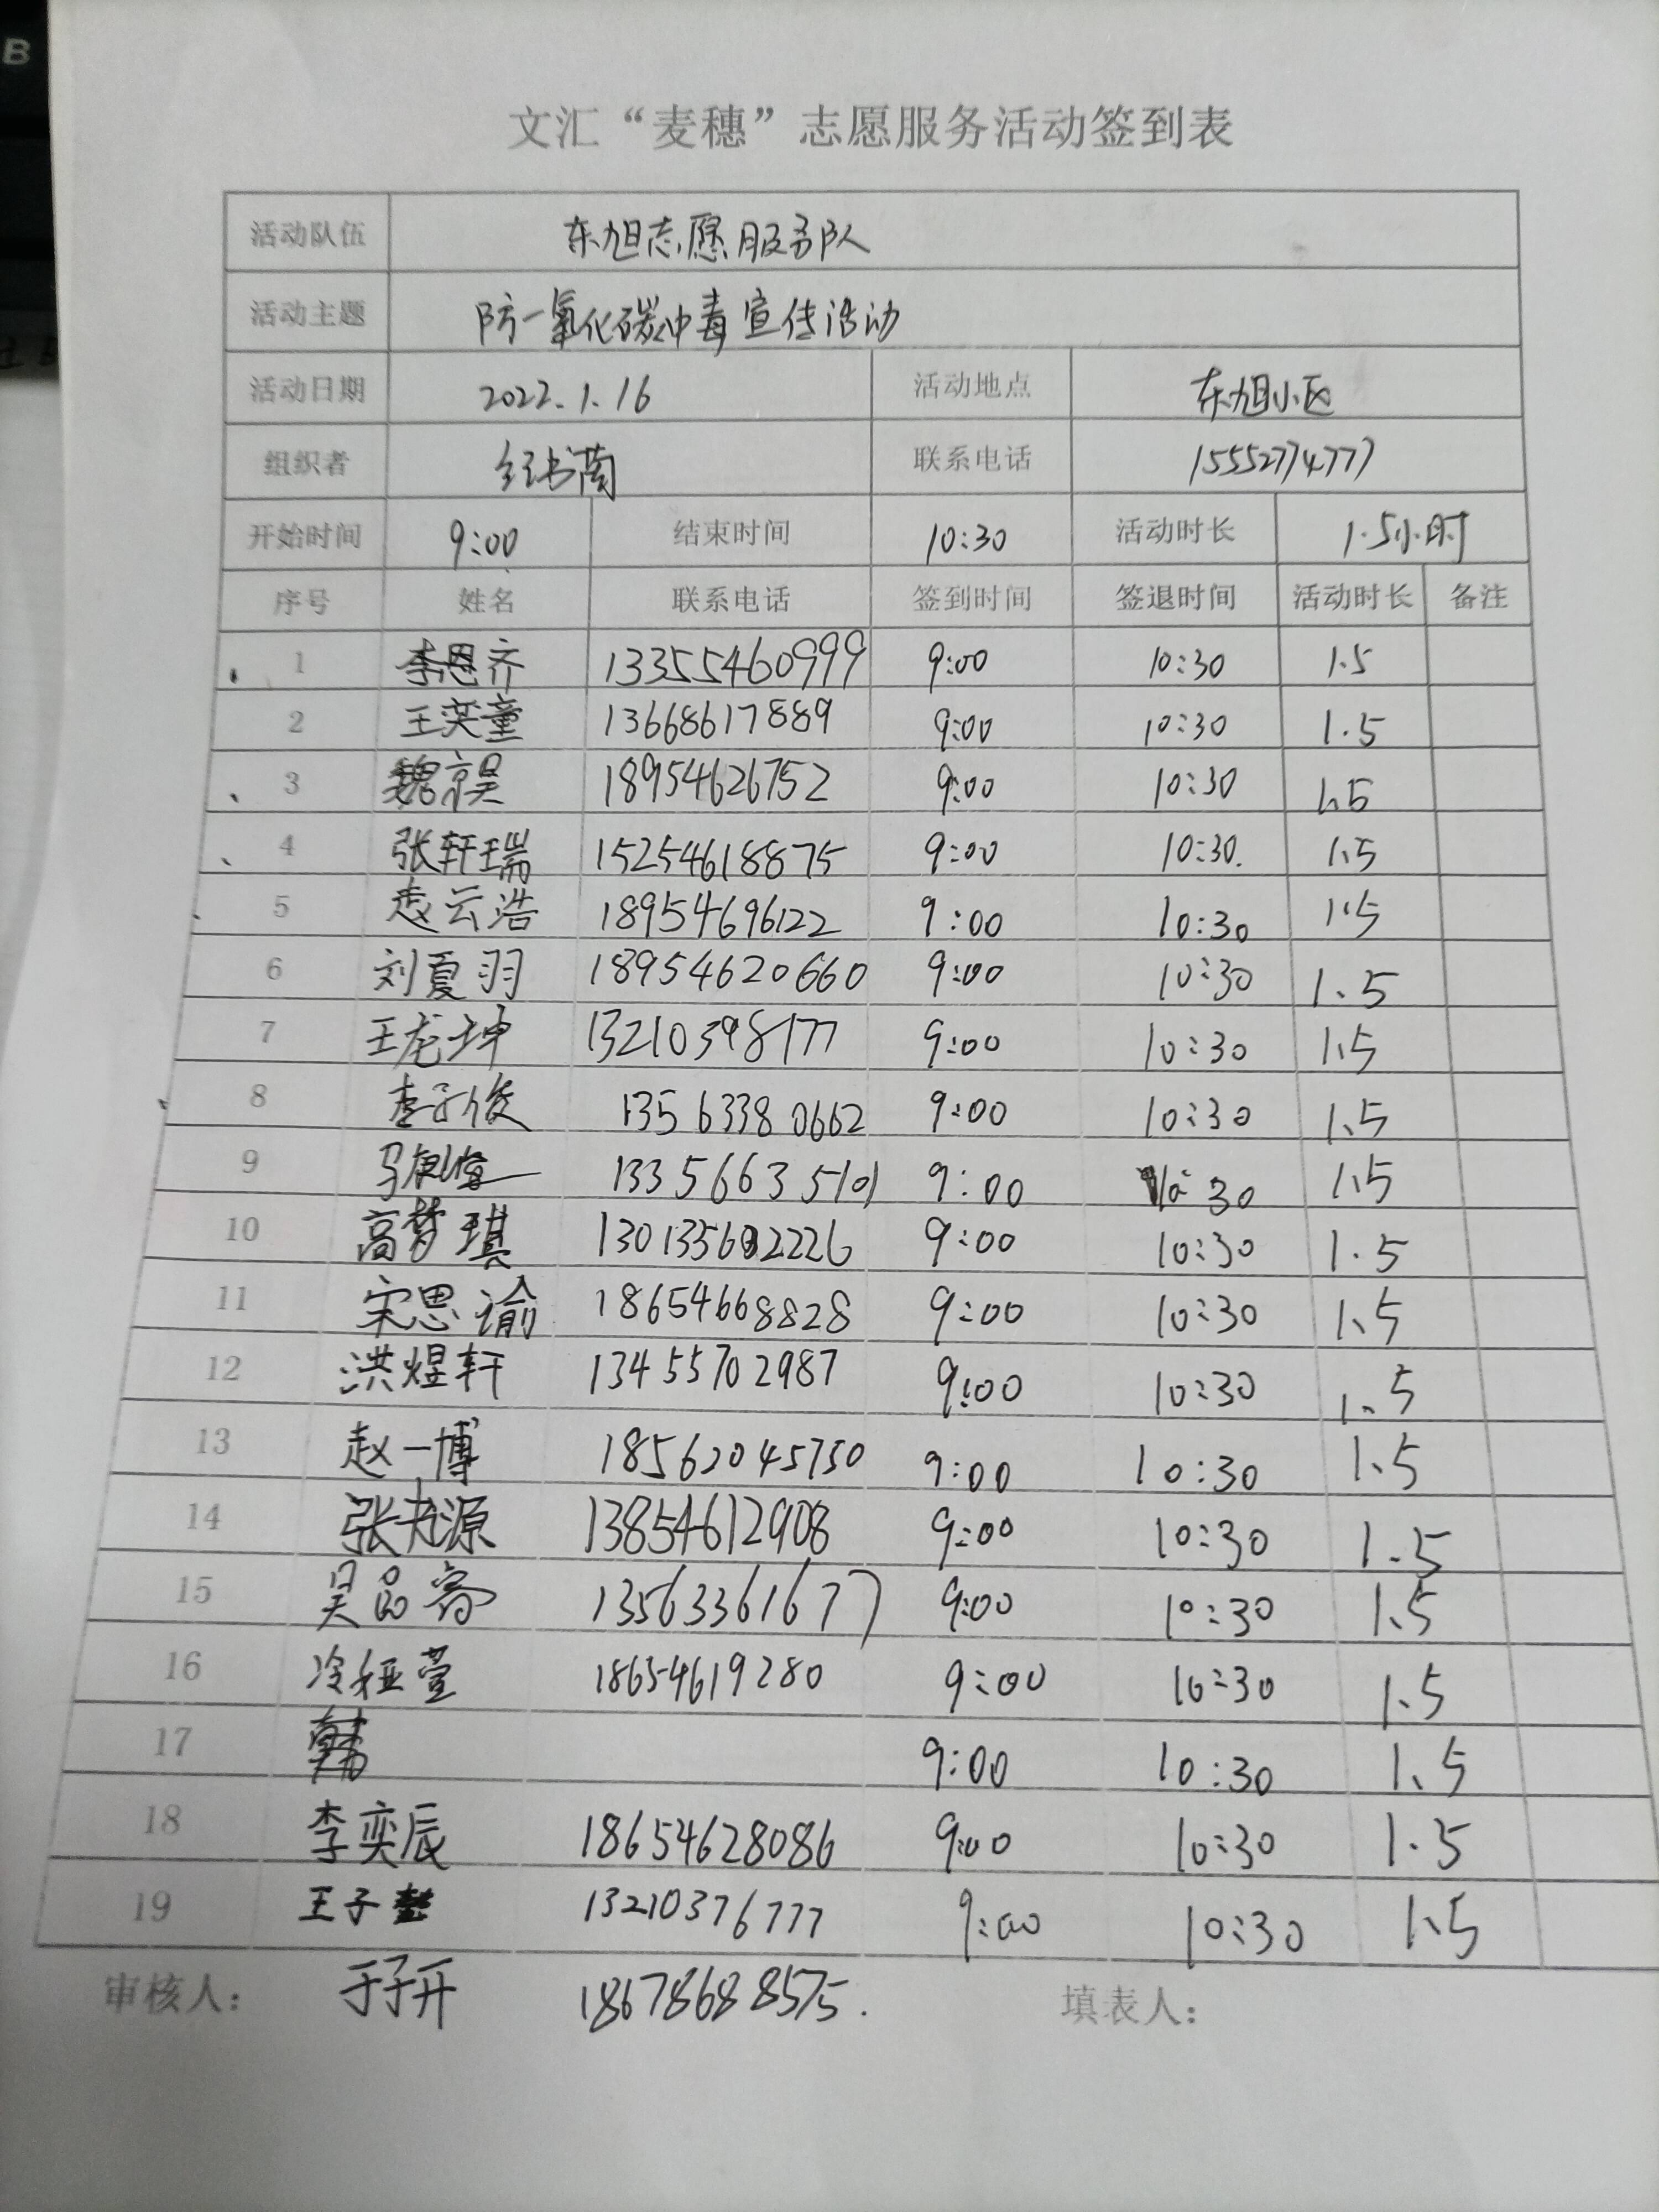 文汇“麦穗”志愿服务活动签到表
活动队伍 东旭志愿服务队
活动主题 防一氧化碳中毒宣传活动
活动日期 2022.1.16 活动地点 东旭小区
组织者 书菌 联系电话 15552774777
开始时间 9:00 结束时间 10:30 活动时长 1.5小时
序号 姓名 联系电话 签到时间 签退时间 活动时长 备注
1 李恩齐 13355460999 9:00 10:30 1.5
2 王奕童 13668617889 9:00 10:30 1.5
3 魏京昊 18954626752 9:00 10:30 1.5
4 张轩瑞 15254618875 9:00 10:30. 1.5
5 赵云浩 18954696122 9:00 10:30 1.5
6 刘夏羽 18954620660 9:00 10:30 1.5
7 王龙坤 13210398177 9:00 10:30 1.5
8 李子俊 13563380662 9:00 10:30 1.5
9 马 13356635101 9:00 10:30 1.5
10 高梦琪 9:00 10:30 1.5
11 宋思谕 18654668828 9:00 10:30 1.5
12 洪煜轩 13455702987 9:00 10:30 1.5
13 赵一博 18562045750 9:00 10:30 1.5
14 张书源 13854612908 9:00 10:30 1.5
15 吴品 13563361677 9:00 10:30 1.5
16 冷 萱 18654619280 9:00 10:30 1.5
17 9:00 10:30 1.5
18 李奕辰 18654628086 9:00 10:30 1.5
19 王子 13210376777 9:00 10:30 1.5
审核人： 于子开 18678688575. 填表人：